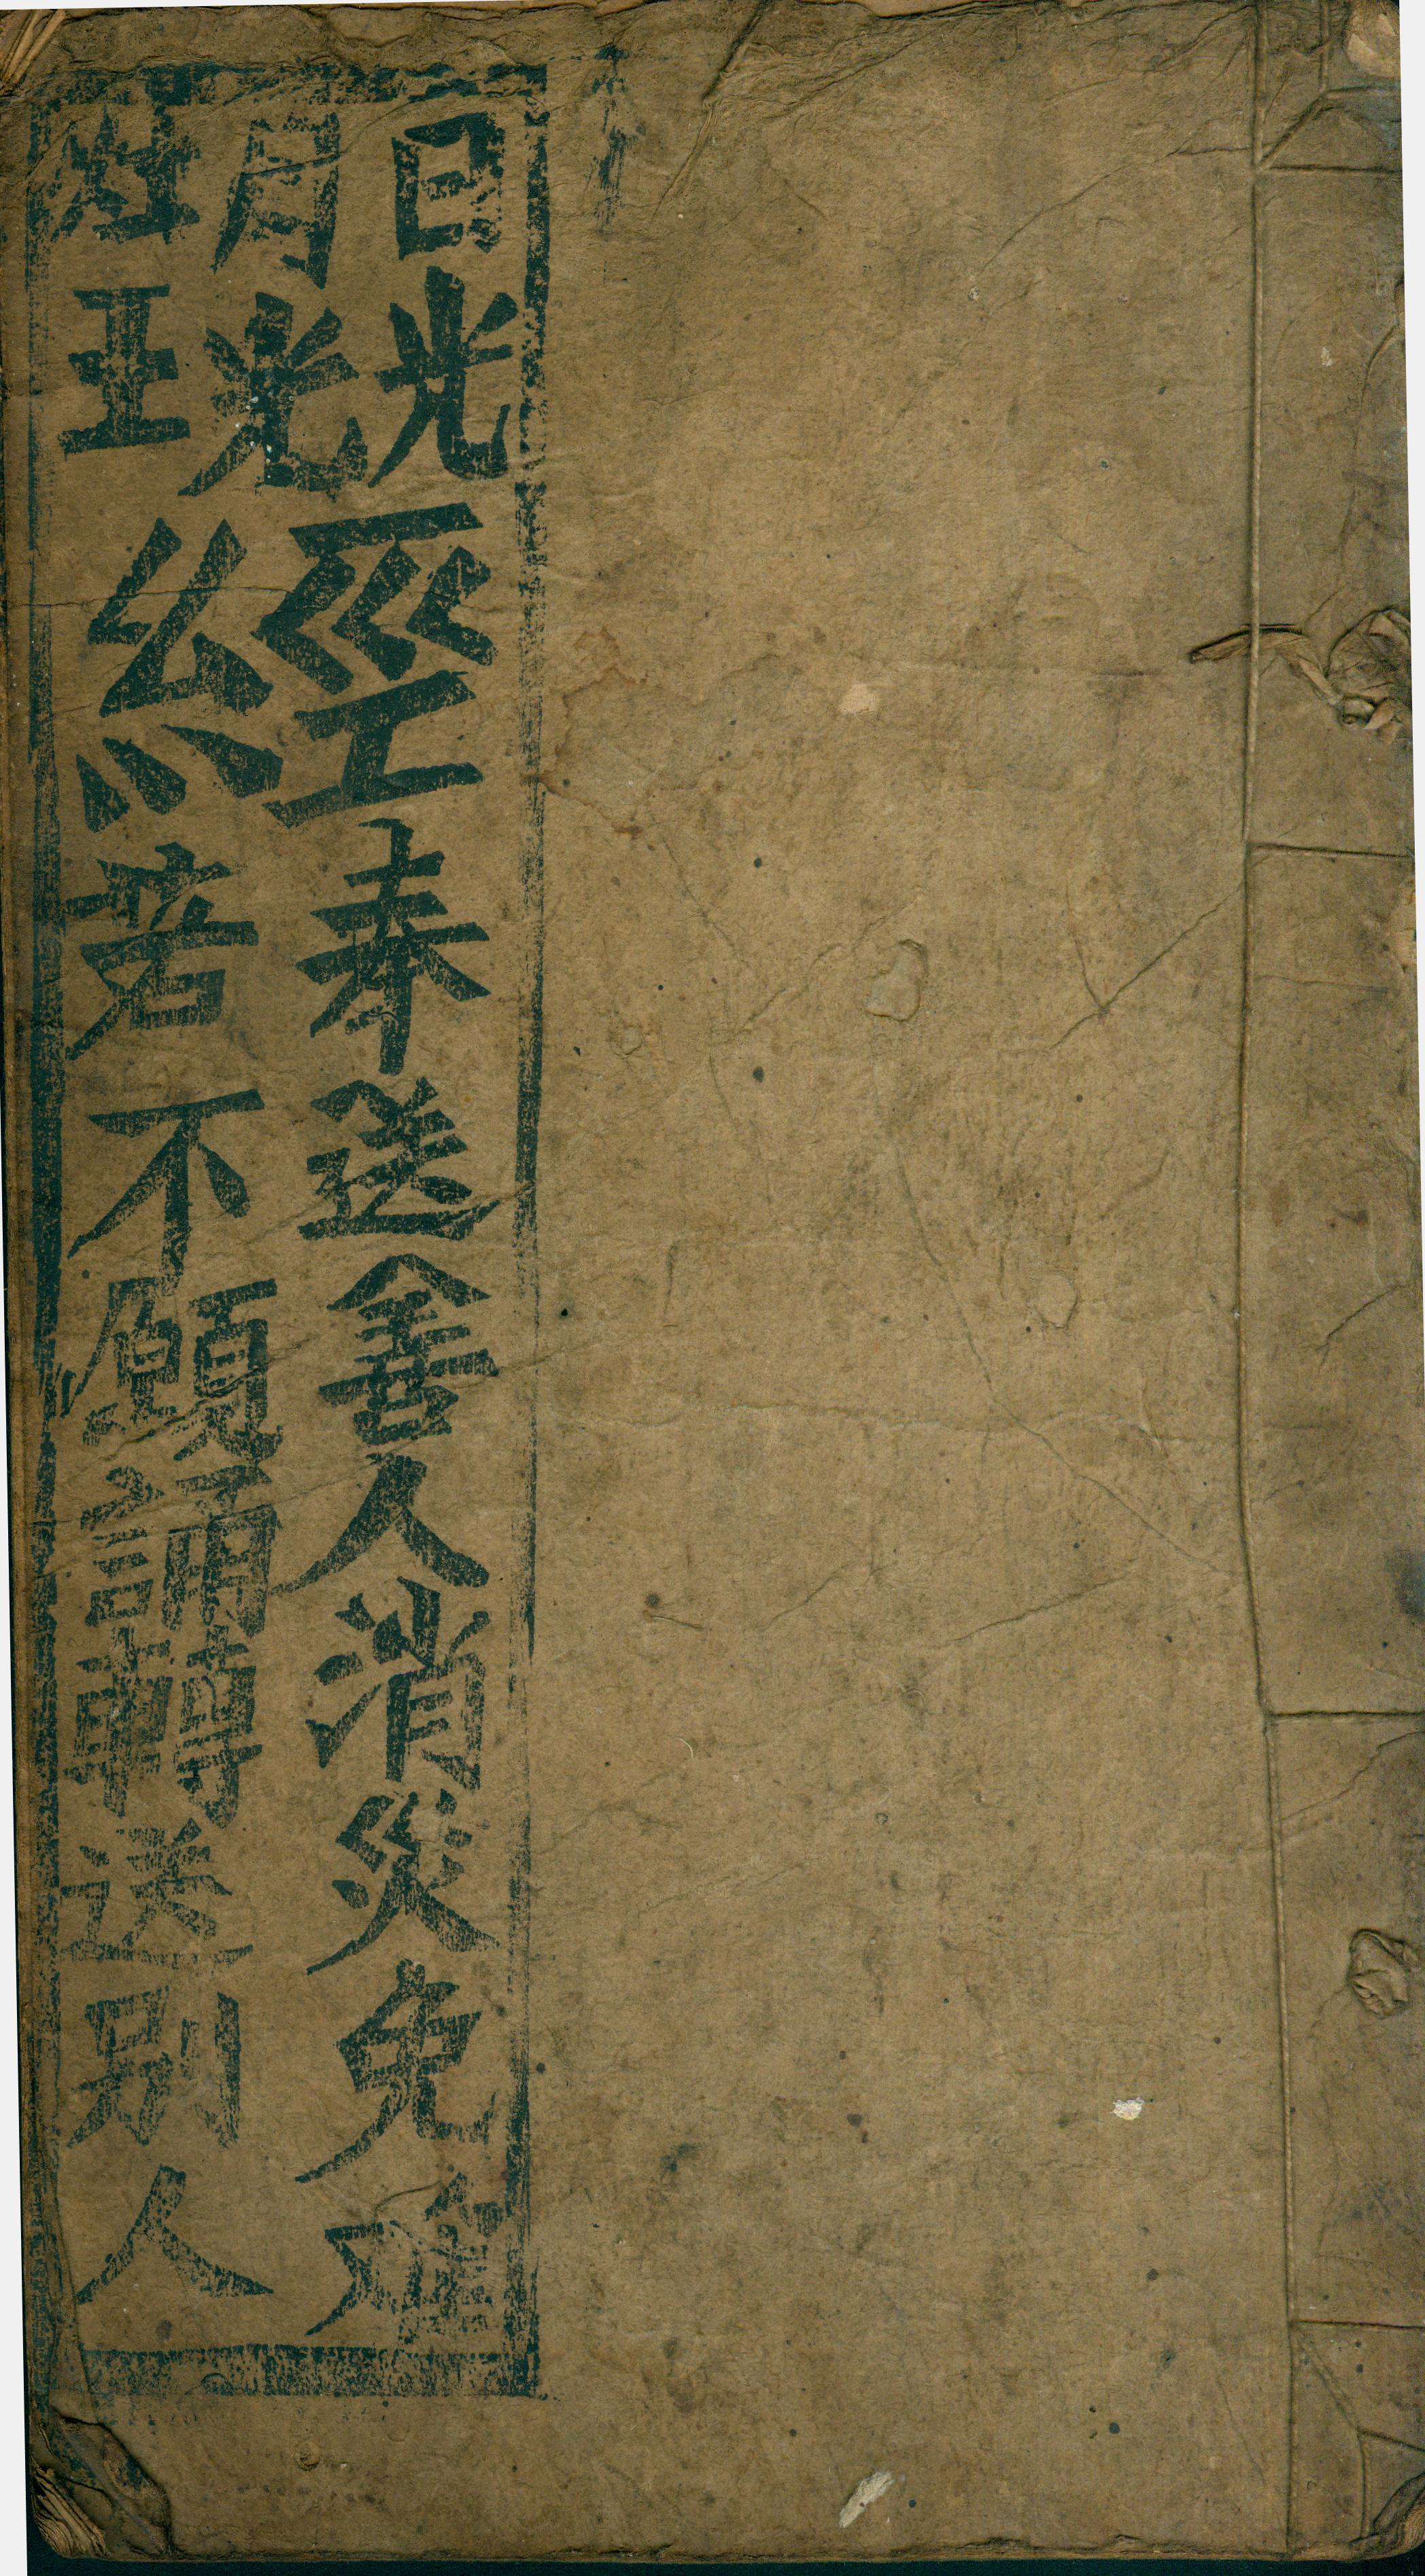 日光
月光
灶王
經
奉送善人消災免難
若不願誦轉送別人